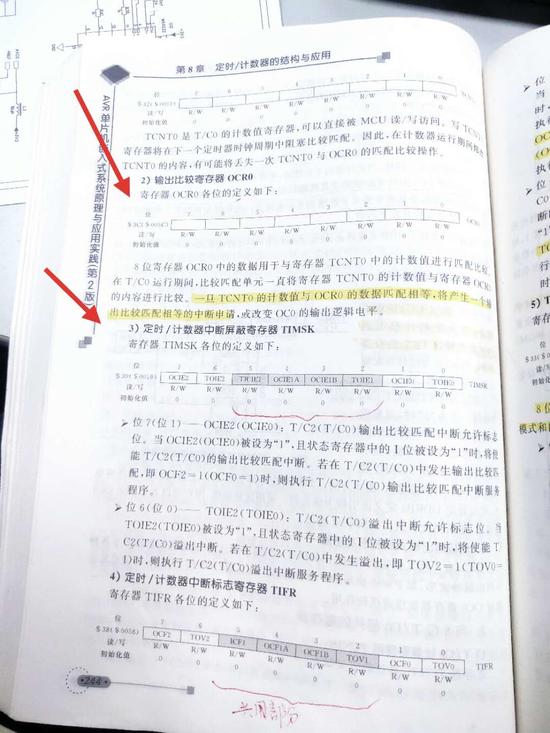 第8章 定时/计数器的结构与应用
AVR单片机嵌入式系统原理与应用实践(第2版)
位 7 6 5 4 3 2 1 0
$32($0052)
读/写 R/W R/W R/W R/W R/W R/W R/W R/W
初始化值 0 0 0 0 0 0 0 0
TCNT0 是 T/C0 的计数值寄存器,可以直接被 MCU 读/写访问。写 TCNT0
寄存器将在下一个定时器时钟周期中阻塞比较匹配。因此,在计数器运行期间修改
TCNT0 的内容,有可能将丢失一次 TCNT0 与 OCR0 的匹配比较操作。
2) 输出比较寄存器 OCR0
寄存器 OCR0 各位的定义如下:
位 7 6 5 4 3 2 1 0
OCR0
读/写 R/W R/W R/W R/W R/W R/W R/W R/W
初始化值 0 0 0 0 0 0 0 0
8 位寄存器 OCR0 中的数据用于与寄存器 TCNT0 中的计数值进行匹配比较。
在 T/C0 运行期间,比较匹配单元一直将寄存器 TCNT0 的计数值与寄存器 OCR0
的内容进行比较。一旦 TCNT0 的计数值与 OCR0 的数据匹配相等,将产生一个输
出比较匹配相等的中断申请,或改变 OC0 的输出逻辑电平。
3) 定时/计数器中断屏蔽寄存器 TIMSK
寄存器 TIMSK 各位的定义如下:
位 7 6 5 4 3 2 1 0
OCIE2 TOIE2 TICIE1 OCIE1A OCIE1B TOIE1 OCIE0 TOIE0 TIMSK
读/写 R/W R/W R/W R/W R/W R/W R/W R/W
初始化值 0 0 0 0 0 0 0 0
➢ 位 7(位 1)—— OCIE2(OCIE0):T/C2(T/C0)输出比较匹配中断允许标志
位。当 OCIE2(OCIE0)被设为“1”,且状态寄存器中的 I 位被设为“1”时,将使
能 T/C2(T/C0)的输出比较匹配中断。若在 T/C2(T/C0)中发生输出比较匹
配,即 OCF2=1(OCF0=1)时,则执行 T/C2(T/C0)输出比较匹配中断服务
程序。
➢ 位 6(位 0)—— TOIE2(TOIE0):T/C2(T/C0)溢出中断允许标志位。当
TOIE2(TOIE0)被设为“1”,且状态寄存器中的 I 位被设为“1”时,将使能 T/
C2(T/C0)溢出中断。若在 T/C2(T/C0)中发生溢出,即 TOV2=1(TOV0=
1)时,则执行 T/C2(T/C0)溢出中断服务程序。
4) 定时/计数器中断标志寄存器 TIFR
寄存器 TIFR 各位的定义如下:
位 7 6 5 4 3 2 1 0
$38($0058) OCF2 TOV2 ICF1 OCF1A OCF1B TOV1 OCF0 TOV0 TIFR
读/写 R/W R/W R/W R/W R/W R/W R/W R/W
初始化值 0 0 0 0 0 0 0 0
244
共用部分